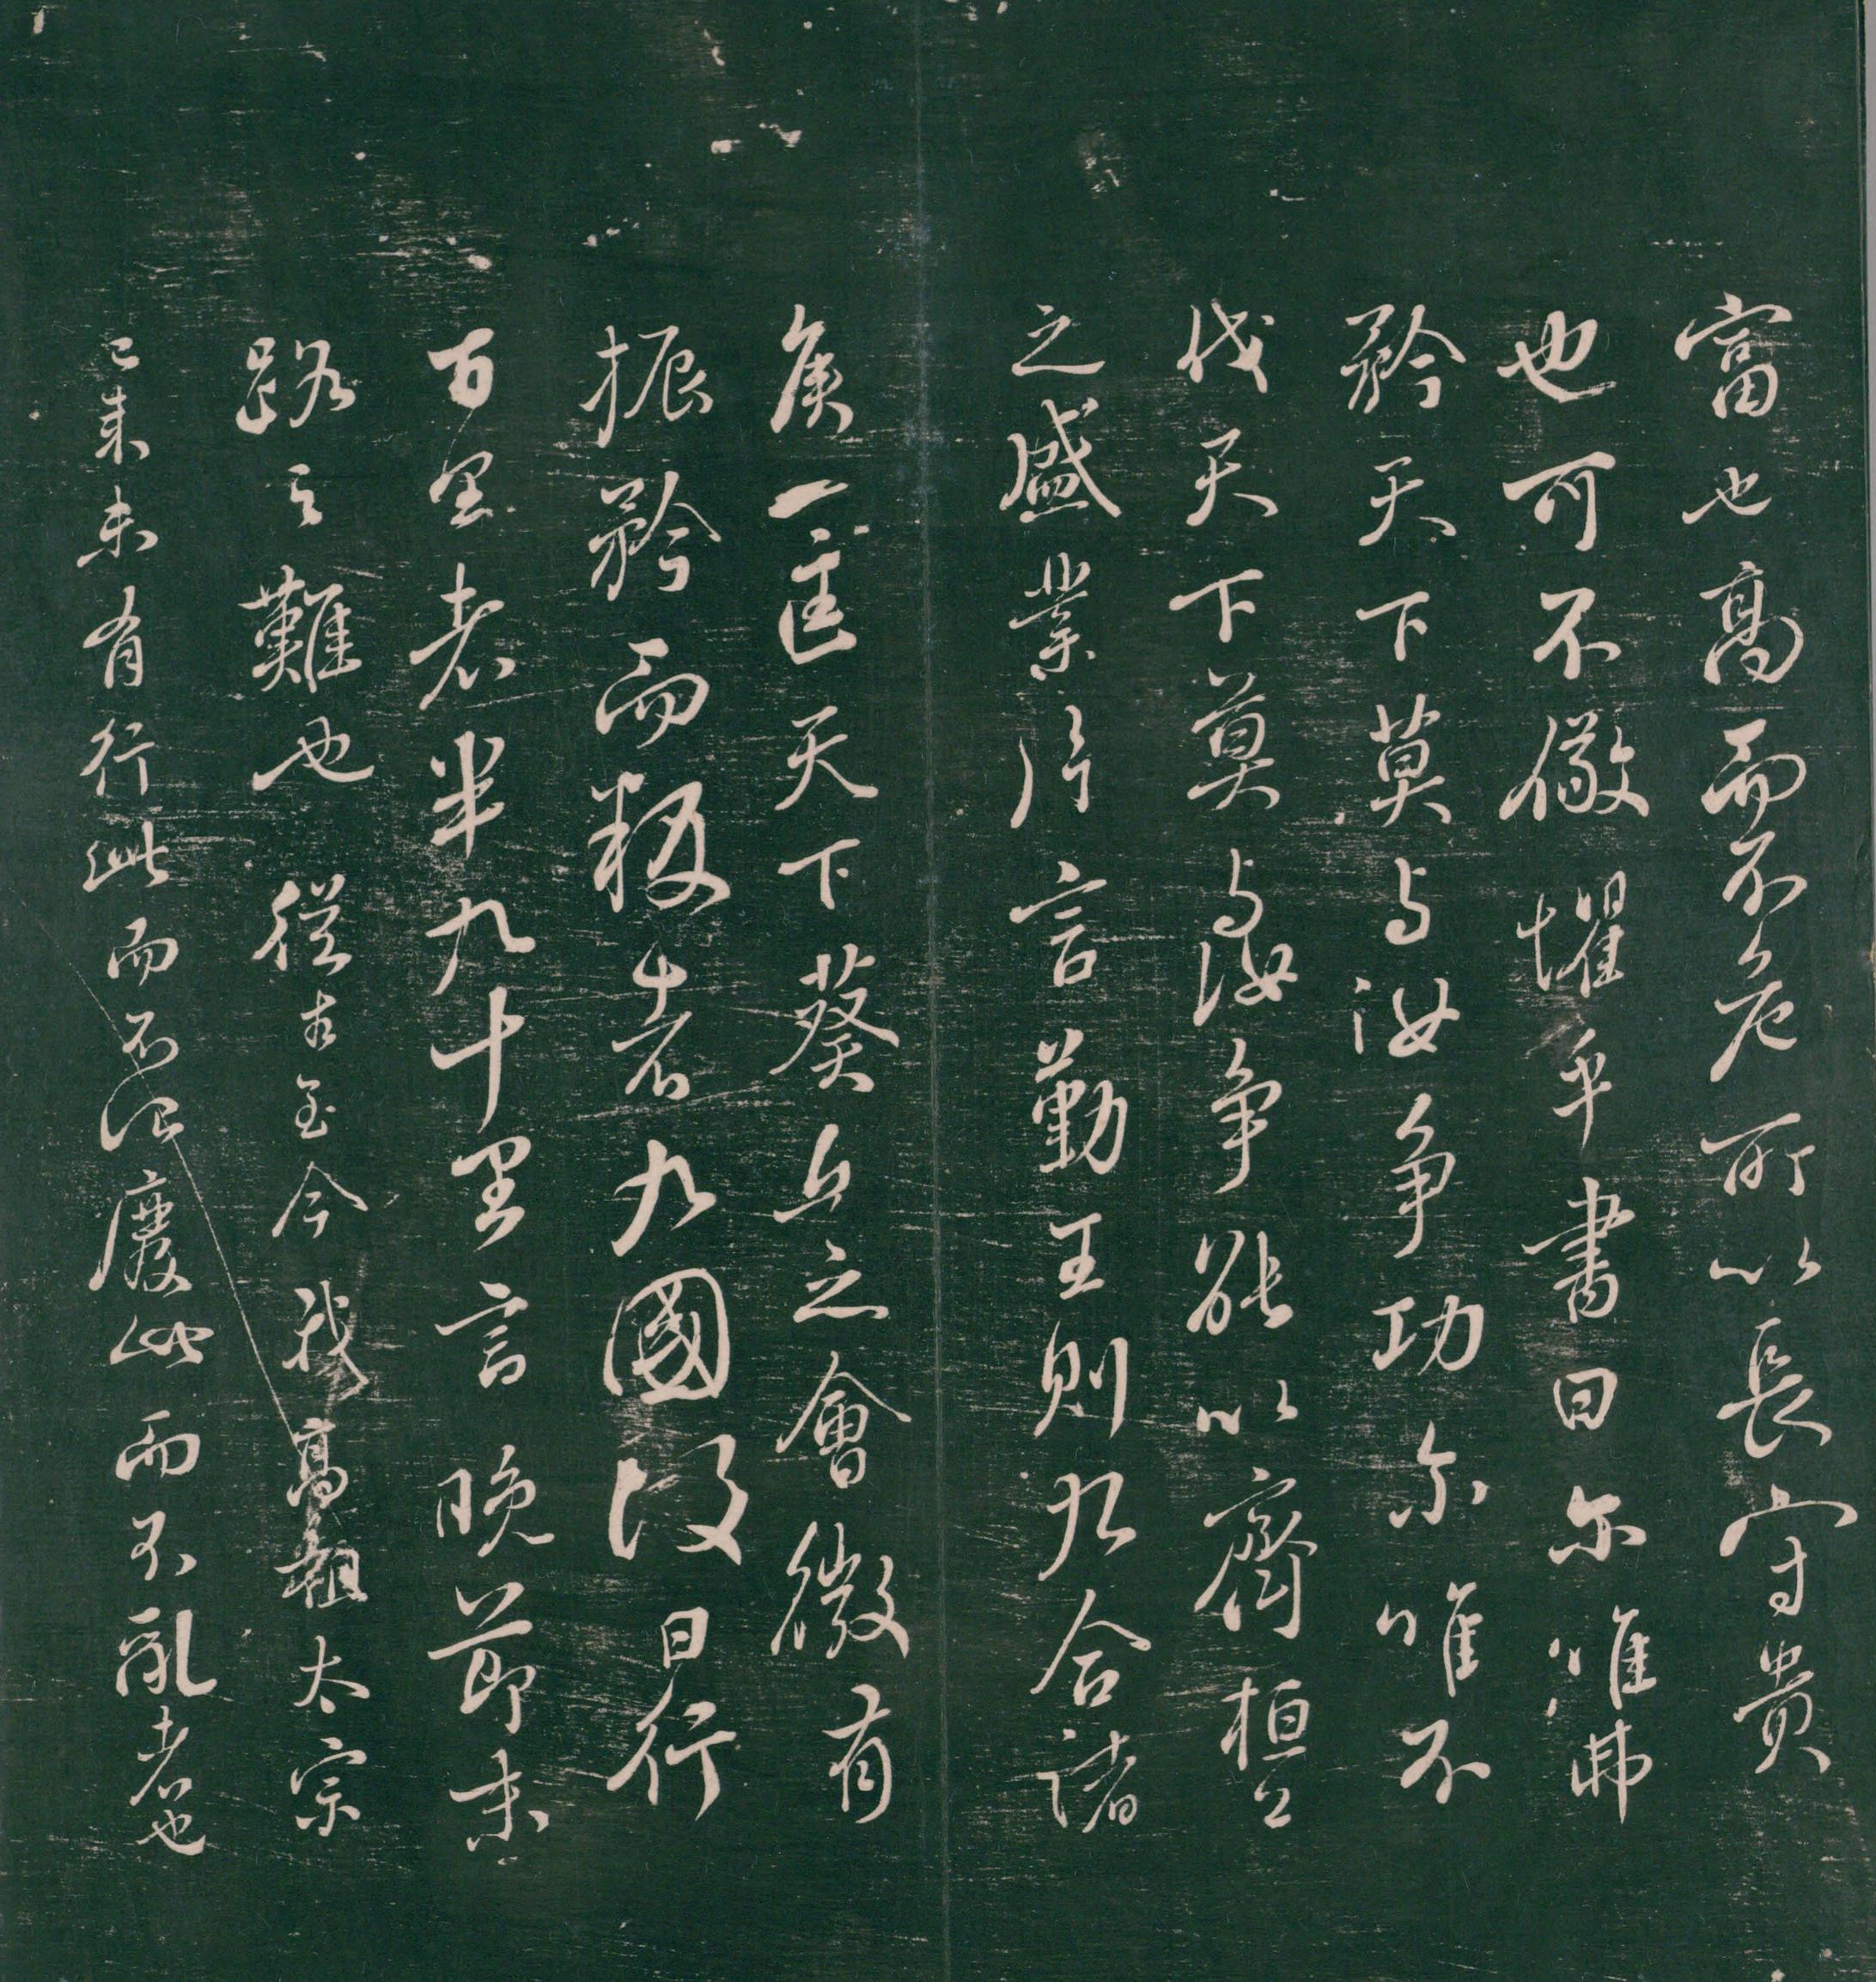 富也高而不危所以長守貴
也可不儆懼乎書曰尔唯弗
矜天下莫与汝争功尔唯不
伐天下莫与汝争能以齊桓公
之盛業片言勤王則九合諸
侯一匡天下葵丘之會微有
振矜而叛者九國故曰行
百里者半九十里言晚節末
路之難也從古至今我高祖太宗
已来未有行此而不理廢此而不亂者也